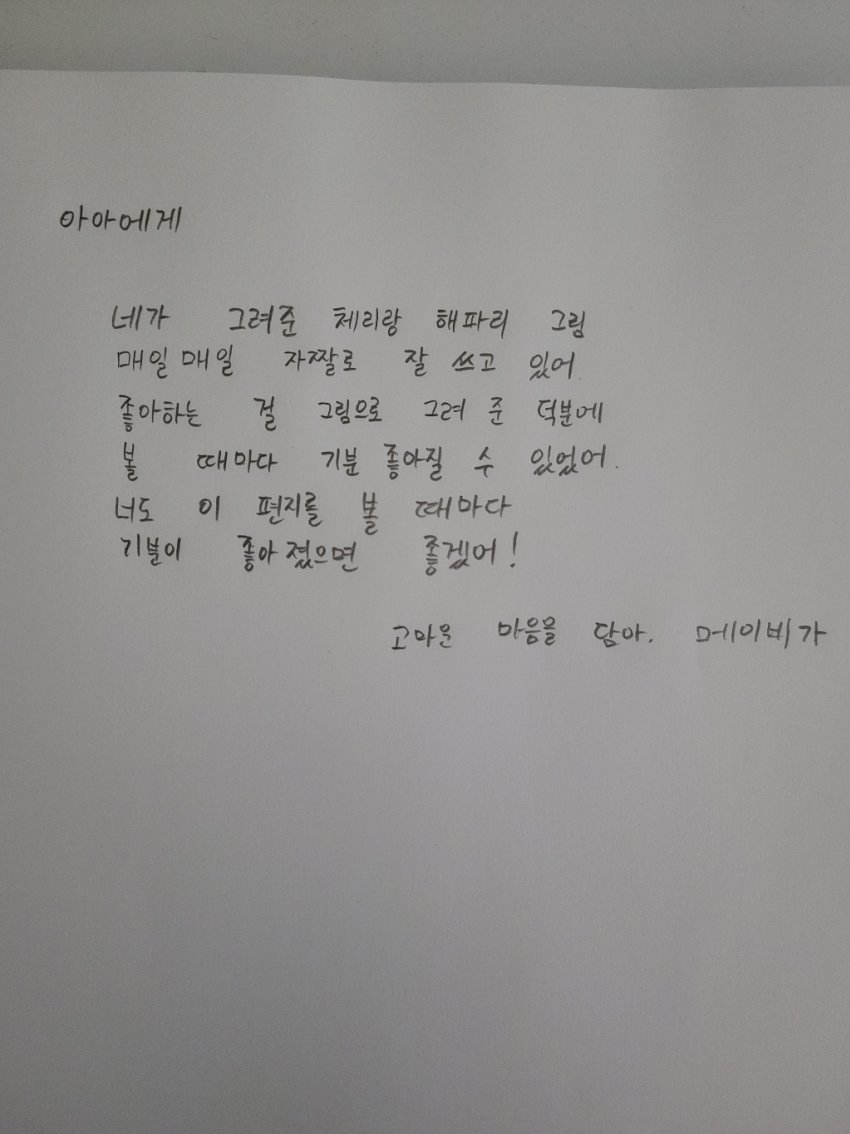 아아에게
네가 그려준 체리랑 해파리 그림
매일매일 자짤로 잘 쓰고 있어.
좋아하는 걸 그림으로 그려 준 덕분에
볼 때마다 기분 좋아질 수 있었어.
너도 이 편지를 볼 때마다
기분이 좋아졌으면 좋겠어!
고마운 마음을 담아. 메이비가